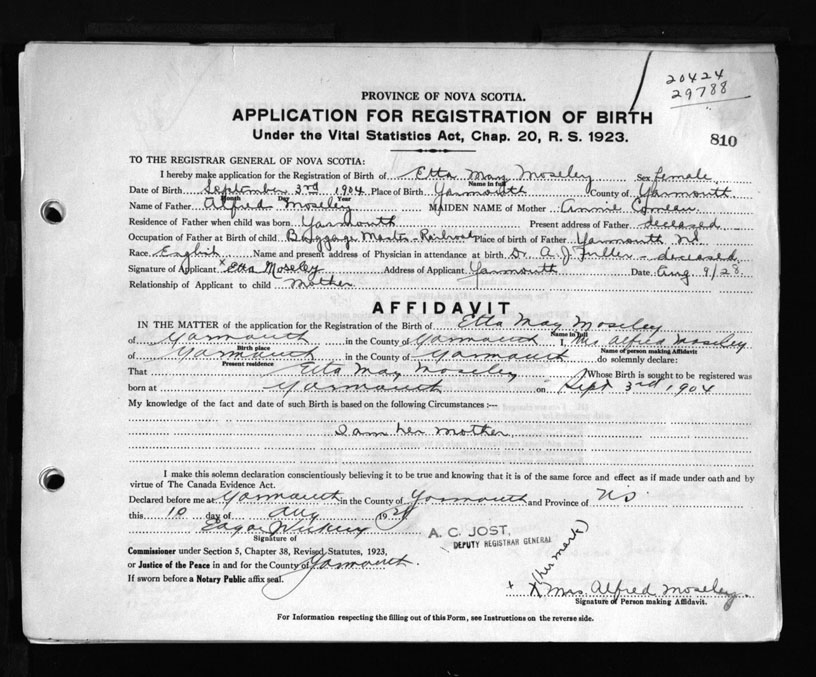 20424
29788
PROVINCE OF NOVA SCOTIA.
APPLICATION FOR REGISTRATION OF BIRTH
Under the Vital Statistics Act, Chap. 20, R. S. 1923.
810
TO THE REGISTRAR GENERAL OF NOVA SCOTIA:
I hereby make application for the Registration of Birth of Etta May Moseley Sex female
Name in full
Date of Birth September 3rd 1904 Place of Birth Yarmouth County of Yarmouth
Month Day Year
Name of Father Alfred Moseley MAIDEN NAME of Mother Annie Comeau
Residence of Father when child was born Yarmouth Present address of Father deceased
Occupation of Father at Birth of child Baggage Master - Railroad Place of birth of Father Yarmouth NS
Race English Name and present address of Physician in attendance at birth Dr. A. J. Fuller - deceased
Signature of Applicant x Etta Moseley Address of Applicant Yarmouth Date Aug 9/28
Relationship of Applicant to child mother
AFFIDAVIT
IN THE MATTER of the application for the Registration of the Birth of Etta May Moseley
Name in full
of Yarmouth in the County of Yarmouth I, Mrs Alfred Moseley
Birth place Name of person making Affidavit
of Yarmouth in the County of Yarmouth do solemnly declare:
Present residence
That Etta May Moseley Whose Birth is sought to be registered was
born at Yarmouth on Sept 3rd 1904
My knowledge of the fact and date of such Birth is based on the following Circumstances :--
I am her mother
I make this solemn declaration conscientiously believing it to be true and knowing that it is of the same force and effect as if made under oath and by
virtue of The Canada Evidence Act.
Declared before me at Yarmouth in the County of Yarmouth and Province of NS
this 10 day of Aug 1928
Edgar
Signature of
A. C. JOST,
DEPUTY REGISTRAR GENERAL
Commissioner under Section 5, Chapter 38, Revised Statutes, 1923,
or Justice of the Peace in and for the County of Yarmouth.
If sworn before a Notary Public affix seal.
(her mark)
+ X Mrs Alfred Moseley
Signature of Person making Affidavit.
For Information respecting the filling out of this Form, see Instructions on the reverse side.